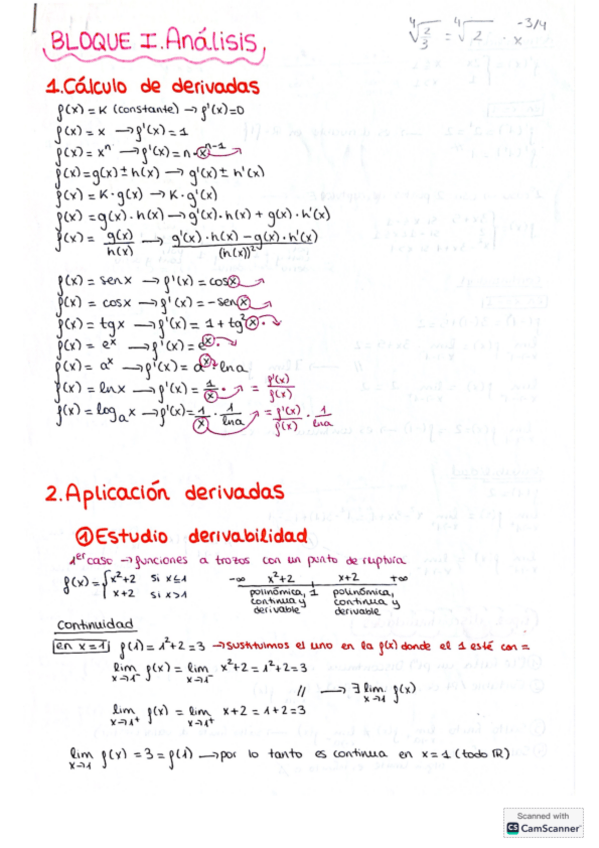 BLOQUE I. Análisis
∜(2/3) = ∜2 · x^(-3/4)
1. Cálculo de derivadas
f(x) = K (constante) → f'(x) = 0
f(x) = x → f'(x) = 1
f(x) = xⁿ → f'(x) = n·xⁿ⁻¹
f(x) = g(x) ± h(x) → g'(x) ± h'(x)
f(x) = K·g(x) → K·g'(x)
f(x) = g(x)·h(x) → g'(x)·h(x) + g(x)·h'(x)
f(x) = g(x)/h(x) → (g'(x)·h(x) − g(x)·h'(x))/(h(x))²
f(x) = sen x → f'(x) = cos x
f(x) = cos x → f'(x) = −sen x
f(x) = tg x → f'(x) = 1 + tg² x ·
f(x) = eˣ → f'(x) = eˣ·
f(x) = aˣ → f'(x) = aˣ · ln a
f(x) = ln x → f'(x) = 1/x · = f'(x)/f(x)
f(x) = logₐ x → f'(x) = 1/x · 1/ln a = f'(x)/f(x) · 1/ln a
2. Aplicación derivadas
① Estudio derivabilidad
1er caso → funciones a trozos con un punto de ruptura
f(x) = { x²+2 si x≤1
x+2 si x>1
−∞ x²+2 1 x+2 +∞
polinómica, continua y derivable
polinómica, continua y derivable
Continuidad
en x=1 f(1) = 1²+2 = 3 → sustituimos el uno en la f(x) donde el 1 esté con =
lim x→1⁻ f(x) = lim x→1⁻ x²+2 = 1²+2 = 3
// → ∃ lim x→1 f(x)
lim x→1⁺ f(x) = lim x→1⁺ x+2 = 1+2 = 3
lim x→1 f(x) = 3 = f(1) → por lo tanto es continua en x=1 (todo ℝ)
Scanned with
CS CamScanner